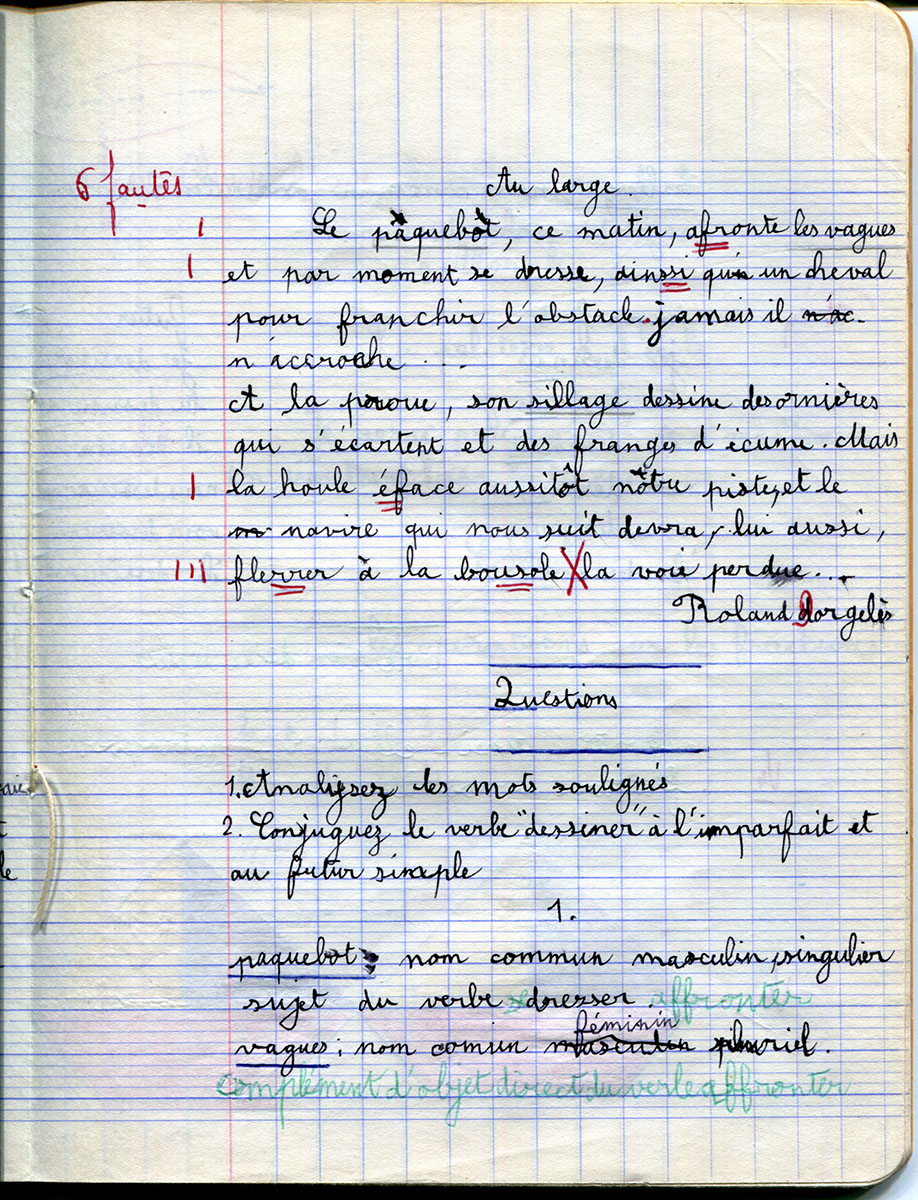 6 fautes
Au large.
Le pàquebòt, ce matin, afronte les vagues
et par moment se dresse, ainssi qu'un cheval
pour franchir l'obstack. jamais il n'ac-
n'accroche ...
A la proue, son sillage dessine des ornières
qui s'écartent et des franges d'écume. Mais
la houle éface aussitôt nôtre piste, et le
m navire qui nous suit devra, lui aussi,
flerrer à la bousole la voie perdue...
Roland Dorgelès
Questions
1. Analysez les mots soulignés
2. Conjuguez le verbe "dessiner" à l'imparfait et
au futur simple
1.
paquebot: nom commun masculin, singulier
sujet du verbe se dresser affronter
féminin
vagues: nom comun masculin pluriel.
Complément d'objet direct du verbe affronter